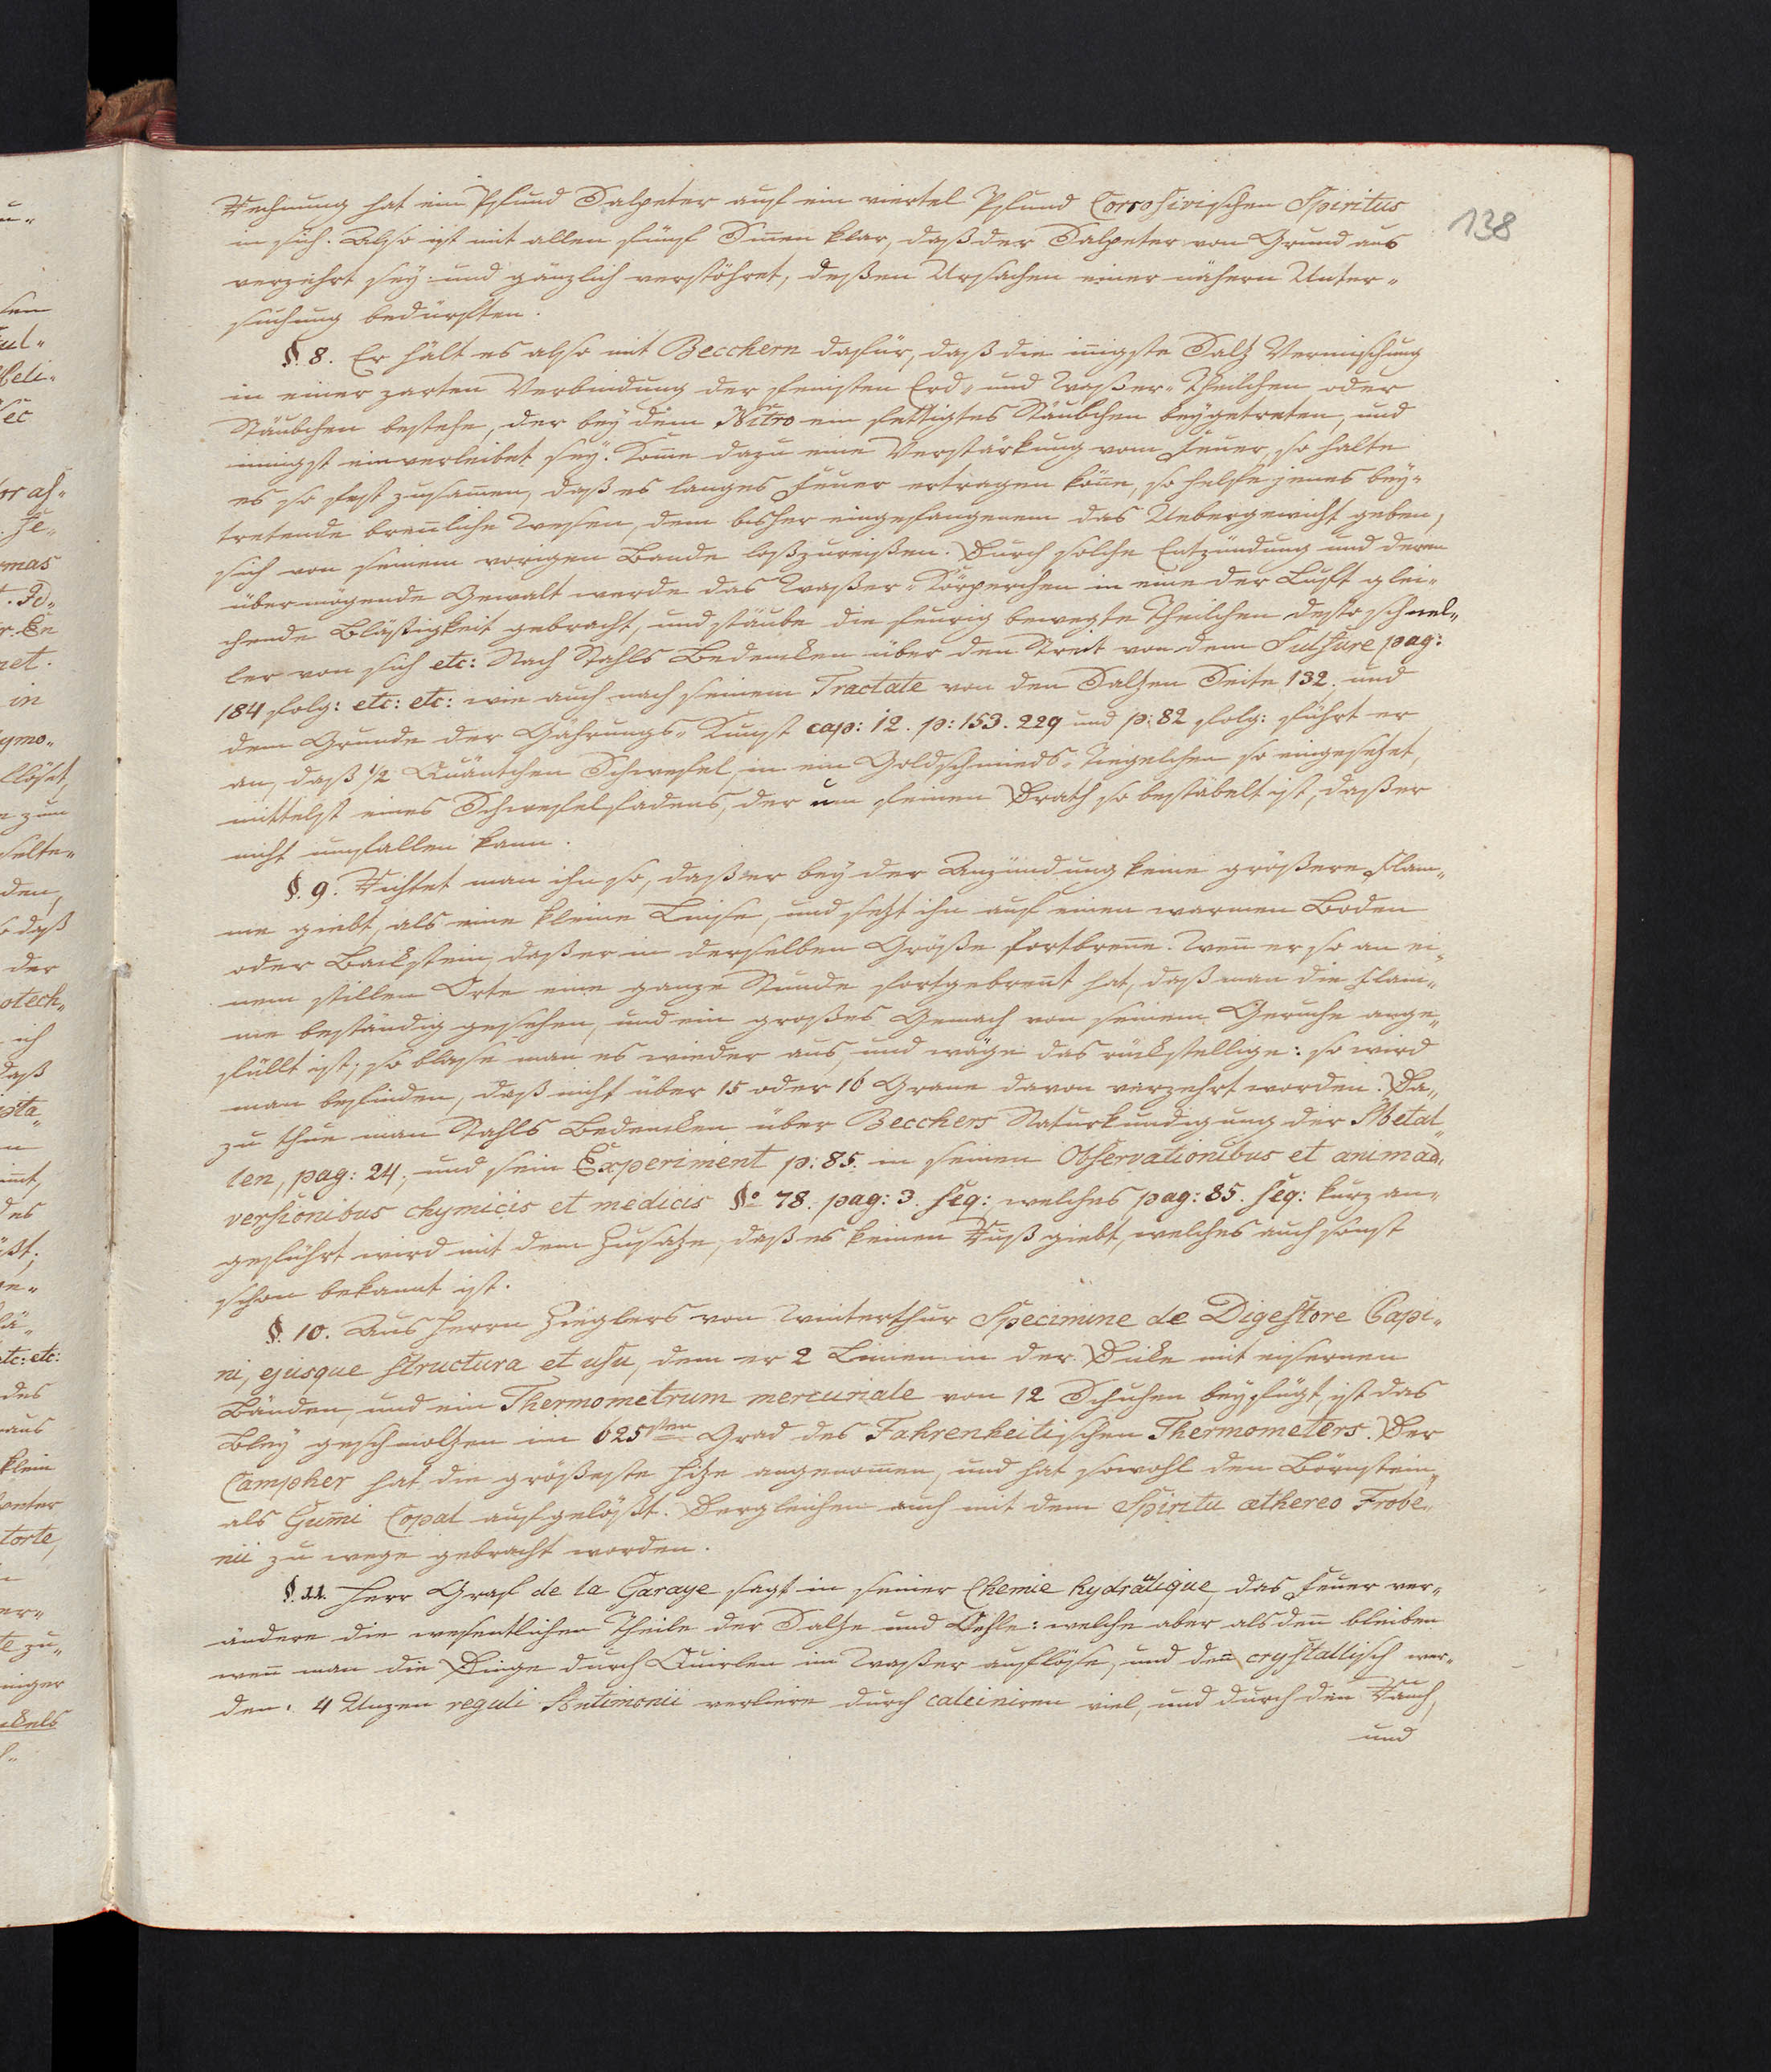 138
Rechnung hat ein Pfund Salpeter auf ein viertel Pfund Corrosivischen Spiritus
in sich. Also ist mit allen fünf Siñen klar, daß der Salpeter von Grund aus
verzehrt sey und gänzlich verstöhret, deßen Ursachen einer nähern Unter-
suchung bedürften.
§. 8. Er hält es also mit Becchern dafür, daß die iñigste Saltz Vermischung
in einer zarten Verbindung der feinsten Erd- und Waßer-Theilchen oder
Stäubchen bestehe, der bey dem Nitro ein fettigtes Stäubchen beygetreten, und
innigst einverleibet sey. Kom̃e dazu eine Verstärkung vom Feuer, so halte
es so fest zusam̃en, daß es langes Feuer ertragen köñe, so helfe jenes bey-
tretende breñliche Wesen, dem bisher eingefangenem das Uebergewicht geben,
sich von seinem vorigen Bande loßzureißen. Durch solche Entzündung und deren
übermögende Gewalt werde das Waßer-Körperchen in eine der Luft glei-
chende Bläßigkeit gebracht, und stäube die feurig bewegte Theilchen desto schnel-
ler von sich etc: Nach Stahls Bedencken über den Streit von dem Sulfure pag:
184 folg: etc: etc: wie auch nach seinem Tractate von den Saltzen Seite 132. und
dem Grunde der Gährungs-Kunst cap: 12. p: 153. 229 und p: 82 folg: führt er
an, daß ½ Quäntchen Schwefel in ein Goldschmieds-Tiegelchen so eingesetzet,
mittelst eines Schwefelfadens, der um feinen Drath so bestäbelt ist, daß er
nicht umfallen kann.
§. 9. Richtet man ihn so, daß er bey der Anzündung keine größere Flam-
me giebt, als eine kleine Linse, und setzt ihn auf einen warmen Boden
oder Backstein, daß er in derselben Größe fortbreñe. Weñ er so an ei-
nem stillen Orte eine ganze Stunde fortgebreñt hat, daß man die Flam-
me beständig gesehen, und ein großes Gemach von seinem Geruche ange-
füllt ist; so blase man es wieder aus, und wäge das rückstellige: so wird
man befinden, daß nicht über 15 oder 16 Grane davon verzehrt worden. Da-
zu thue man Stahls Bedencken über Becchers Naturkundigung der Metal-
len, pag: 24., und sein Experiment p: 85. in seinen Observationibus et animad-
versionibus chymicis et medicis §º 78. pag: 3. seq: welches pag: 85. seq: kurz an-
geführt wird mit dem Zusatze, daß es keinen Ruß giebt, welches auch sonst
schon bekannt ist.
§. 10. Aus Herrn Zieglers von Winterthur Specimine de Digestore Papi-
ni, ejusque structura et usu, dem er 2 Linien in der Dicke mit eisernen
Bänden, und ein Thermometrum mercuriale von 12 Schuhen beyfügt, ist das
Bley geschmoltzen im 625sten Grad des Fahrenheitischen Thermometers. Der
Campher hat die größeste Hitze angenom̃en, und hat sowohl den Börnstein,
als Gum̃i Copal aufgelößt. Dergleichen auch mit dem Spiritu æthereo Frobe-
nii zu wege gebracht worden.
§. 11. Herr Graf de la Garaye sagt in seiner Chemie hydraulique, das Feuer ver-
ändere die wesentlichen Theile der Saltze und Oehle: welche aber als deñ bleiben
weñ man die Dinge durch Quirlen im Waßer auflöse, und deñ crystallisch wer-
den. 4 Unzen reguli Antimonii verliere durch calciniren viel, und durch den Rauch,
und